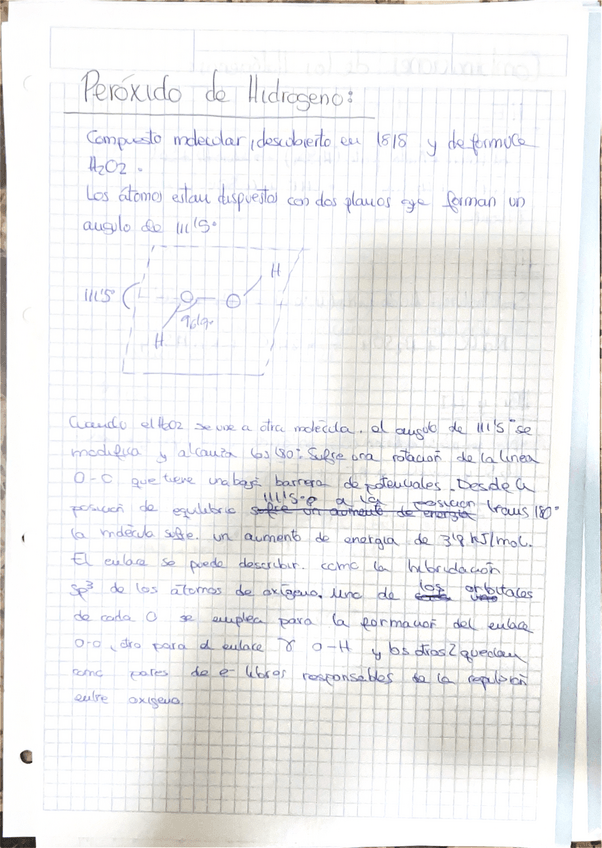 Peróxido de Hidrogeno:
Compuesto molecular, descubierto en 1818 y de formula
H2O2.
Los átomos estan dispuestos con dos planos que forman un
angulo de 111'5°
H
111'5°
O O
96'9°
H
Cuando el H2O2 se une a otra molécula, el angulo de 111'5° se
modifica y alcanza los 180°. Sufre una rotacion de la linea
O-O que tiene una baja barrera de potenciales. Desde la
111'5° a la posicion
posicion de equilibrio sufre un aumento de energia trans 180°
la molécula sufre un aumento de energia de 3'8 kJ/mol.
El enlace se puede describir como la hibridación
sp³ de los átomos de oxígeno. Uno de los orbitales
de cada O se emplea para la formacion del enlace
O-O, otro para el enlace O-H y los otros 2 quedan
como pares de e- libres responsables de la repulsion
entre oxigeno.